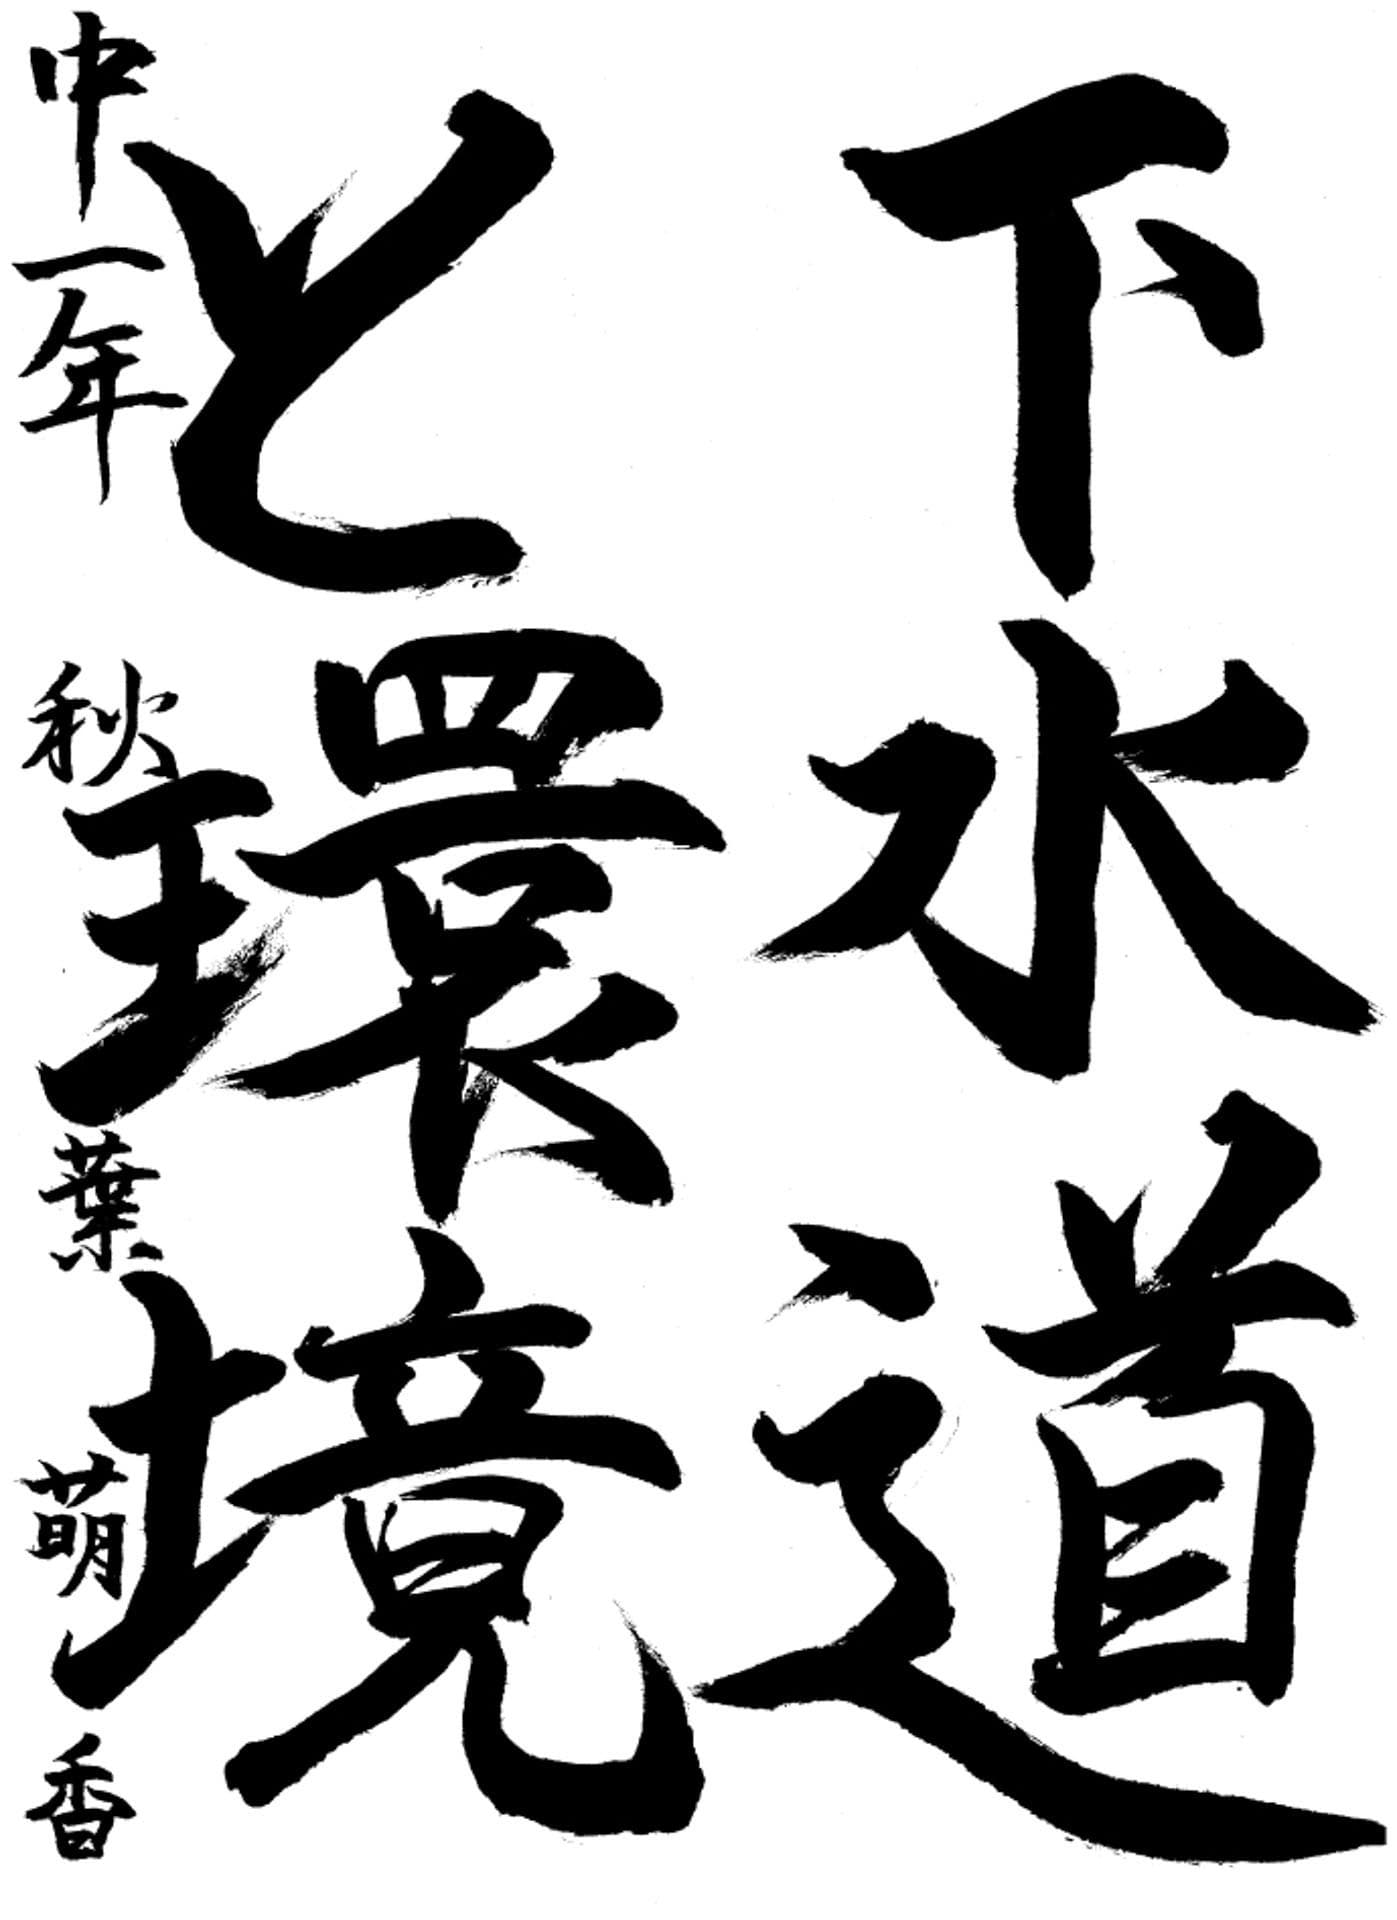 下水道
と環境
中一年 秋葉萌香